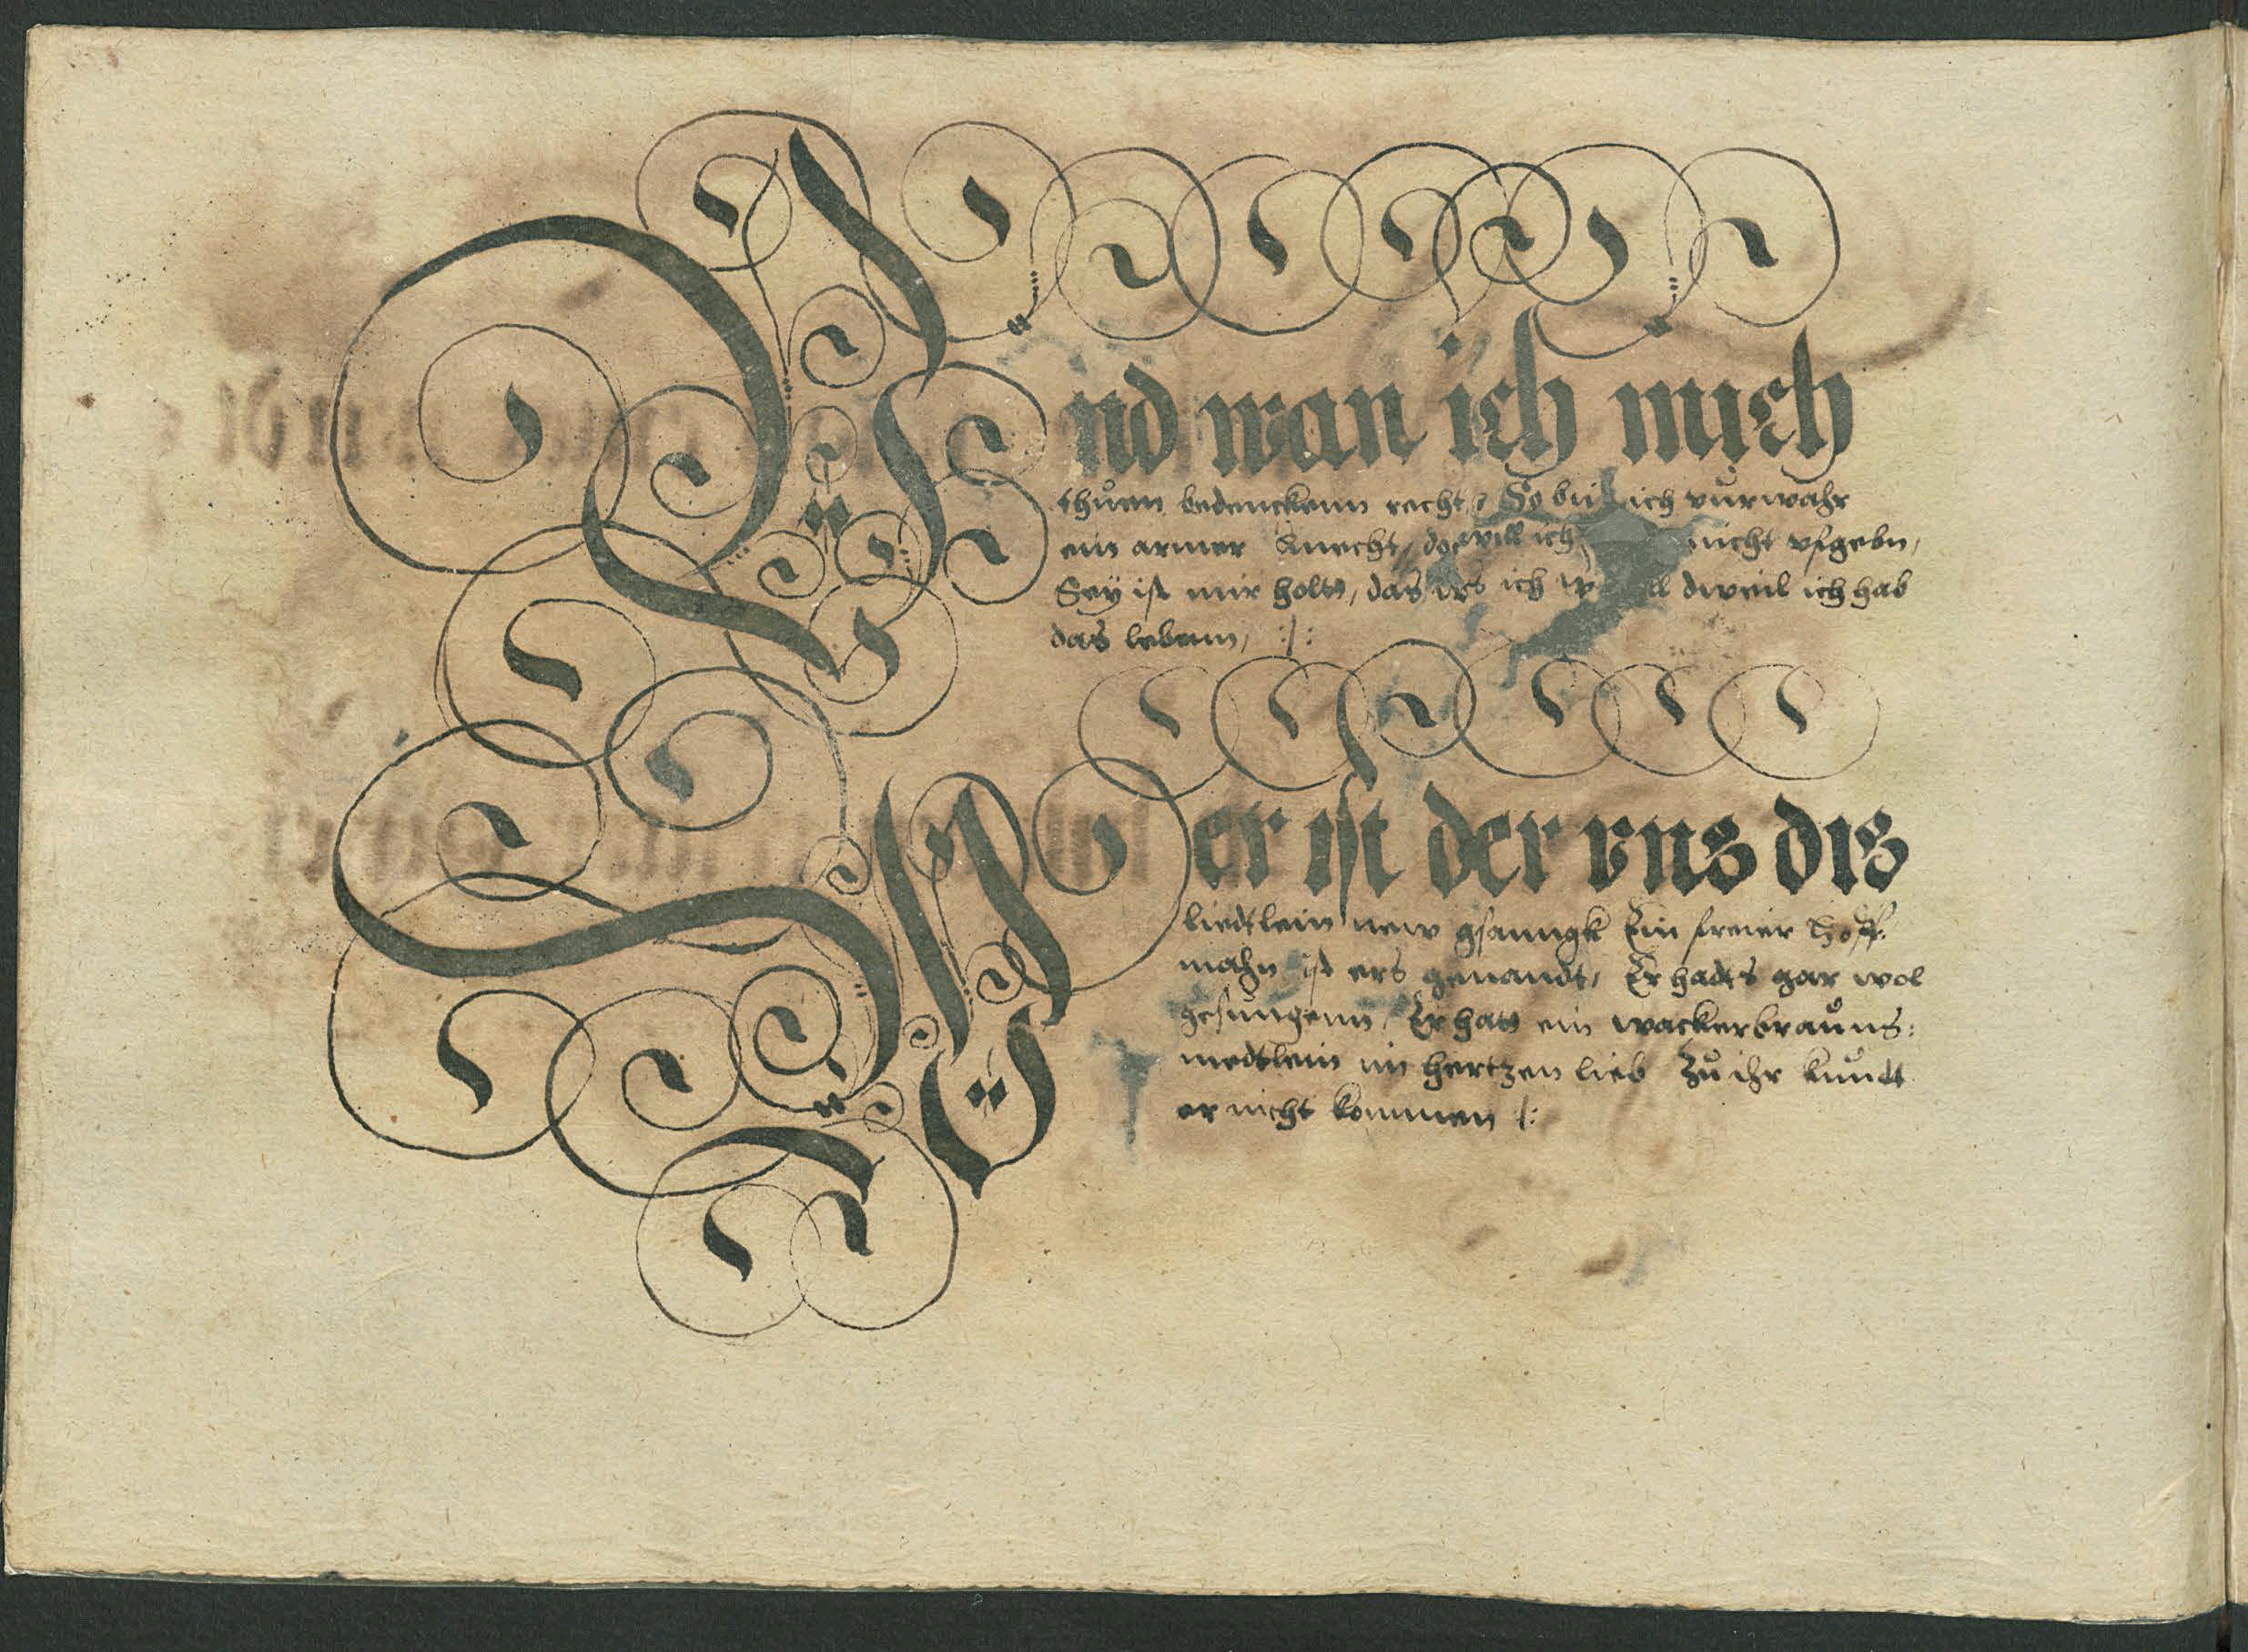 Vnd wan ich mich
thuͦenn bedenckenn recht, So bin ich vuͦrwahr
ein armer Knecht, doch will ich nicht vfgebn,
Sey ist mir holtt, das ich dweil ich hab
das lebenn, :/:
Wer ist der vns dis
liedtlein new gsanngk Ein freier Hoff:
mahn ist ers genandt, Er hadts gar wol
gesungenn, Er hatt ein wackerbrauͦns:
medtlein im hertzen lieb Zuͦ ihr kundt
er nicht kommen /: